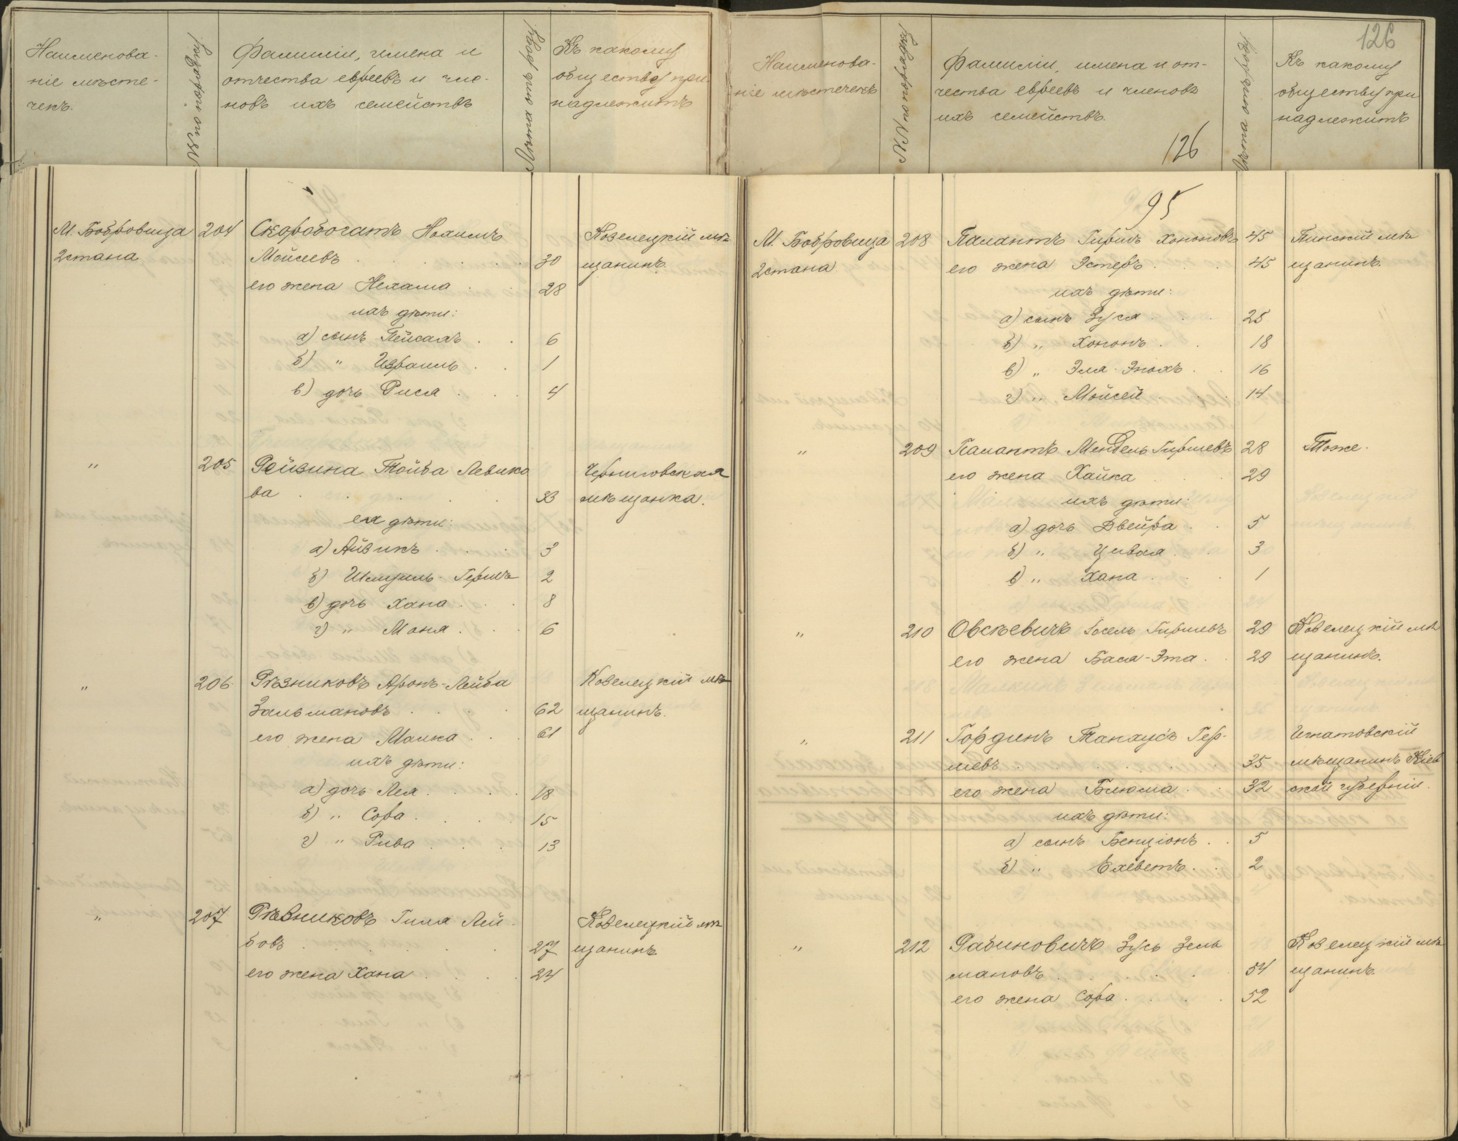 Наименова-
ніе мѣсте-
чекъ.
№№ по порядку
Фамиліи, имена и
отчества евреевъ и чле-
новъ ихъ семействъ
Лѣта отъ роду
Къ какому
обществу при
надлежитъ
М. Бобровица
2 стана
204
Скоробогатъ
Мойсеевъ
30
Козелецкій мѣ
щанинъ.
его жена Нехама
28
ихъ дѣти:
а) сынъ Пейсахъ
6
б) " Израиль
1
в) дочь Рися
4
"
205
Рейзина Тойба Левико
ва
33
Черниговская
мѣщанка.
ея дѣти:
а) Айзикъ
3
б) Шмуиль-Гершъ
2
в) дочь Хана
8
г) " Маня
6
"
206
Рѣзниковъ Аронъ-Лейба
Зальмановъ
62
Козелецкій мѣ
щанинъ.
его жена Малка
61
ихъ дѣти:
а) дочь Лея
18
б) " Сора
15
г) " Рива
13
"
207
Рѣзниковъ Гиля Лей
бовъ
27
Козелецкій мѣ
щанинъ
его жена Хана
24
126
Наименова-
ніе мѣстечекъ
№№ по порядку
Фамиліи, имена и от-
чества евреевъ и членовъ
ихъ семействъ.
Лѣта отъ роду
Къ какому
обществу при
надлежитъ
126
95
М. Бобровица
2 стана
208
Палантъ Гиршъ Хононовъ
45
Пинскій мѣ
щанинъ.
его жена Эстеръ
45
ихъ дѣти:
а) сынъ Зуся
25
б) " Хононъ
18
в) " Эля-Энохъ
16
г) " Мойсей
14
"
209
Палантъ Мендель Гиршевъ
28
Тоже.
его жена Хайка
29
ихъ дѣти:
а) дочь Двейра
5
б) " Цивья
3
в) " Хана
1
"
210
Овсѣевичъ Іосель Гиршевъ
29
Козелецкій мѣ
щанинъ.
его жена Бася-Эта
29
"
211
Гординъ Танхусъ Гер-
шевъ
35
Игнатовскій
мѣщанинъ Кіев
ской губерніи.
его жена Блюма
32
ихъ дѣти:
а) сынъ Бенціонъ
5
б) "
2
"
212
Рабиновичъ Зусь Зель
мановъ
54
Козелецкій мѣ
щанинъ
его жена Сора
52